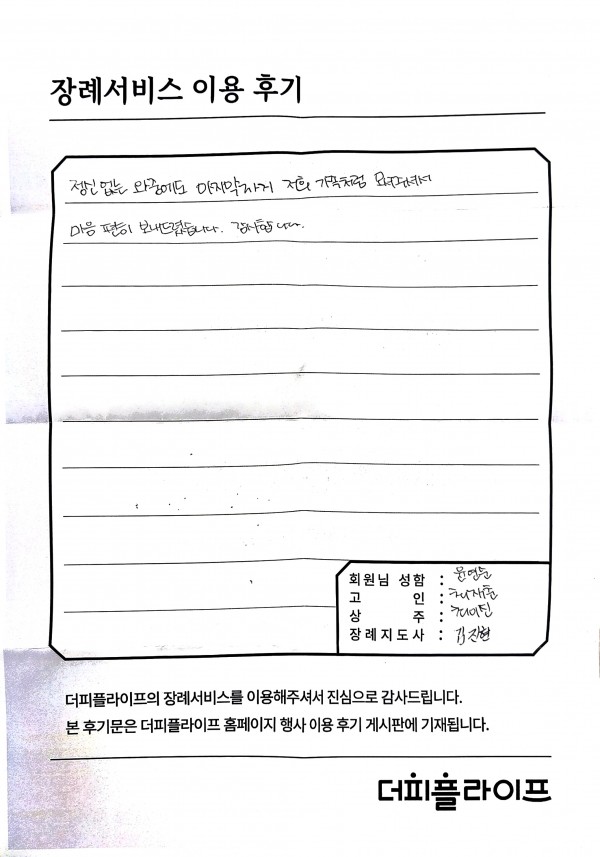 장례서비스 이용 후기
정신없는 와중에도 마지막까지 저희 가족처럼 모셔주셔서
마음 편히 보내드렸습니다. 감사합니다.
회원님 성함 : 윤연순
고 인 :
상 주 :
장례지도사 : 김진현
더피플라이프의 장례서비스를 이용해주셔서 진심으로 감사드립니다.
본 후기문은 더피플라이프 홈페이지 행사 이용 후기 게시판에 기재됩니다.
더피플라이프